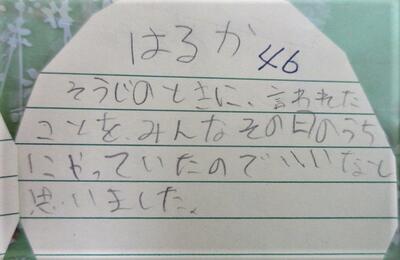 はるか 46
そうじのときに、言われた
ことを、みんなその日のうち
にやっていたのでいいなと
思いました。